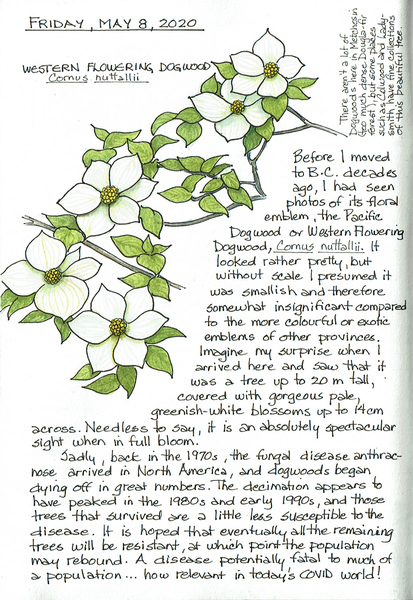 FRIDAY, MAY 8, 2020
WESTERN FLOWERING DOGWOOD
Cornus nuttallii
There aren't a lot of
Dogwoods here in Metchosin
(too much dense Douglas-fir
forest), but some places
such as Colwood and Lady-
smith, have fine collections
of this beautiful tree.
Before I moved
to B.C. decades
ago, I had seen
photos of its floral
emblem, the Pacific
Dogwood or Western Flowering
Dogwood, Cornus nuttallii. It
looked rather pretty, but
without scale I presumed it
was smallish and therefore
somewhat insignificant compared
to the more colourful or exotic
emblems of other provinces.
Imagine my surprise when I
arrived here and saw that it
was a tree up to 20 m tall,
covered with gorgeous pale,
greenish-white blossoms up to 14cm
across. Needless to say, it is an absolutely spectacular
sight when in full bloom.
Sadly, back in the 1970s, the fungal disease anthrac-
nose arrived in North America, and dogwoods began
dying off in great numbers. The decimation appears to
have peaked in the 1980s and early 1990s, and those
trees that survived are a little less susceptible to the
disease. It is hoped that eventually all the remaining
trees will be resistant, at which point the population
may rebound. A disease potentially fatal to much of
a population... how relevant in today's COVID world!